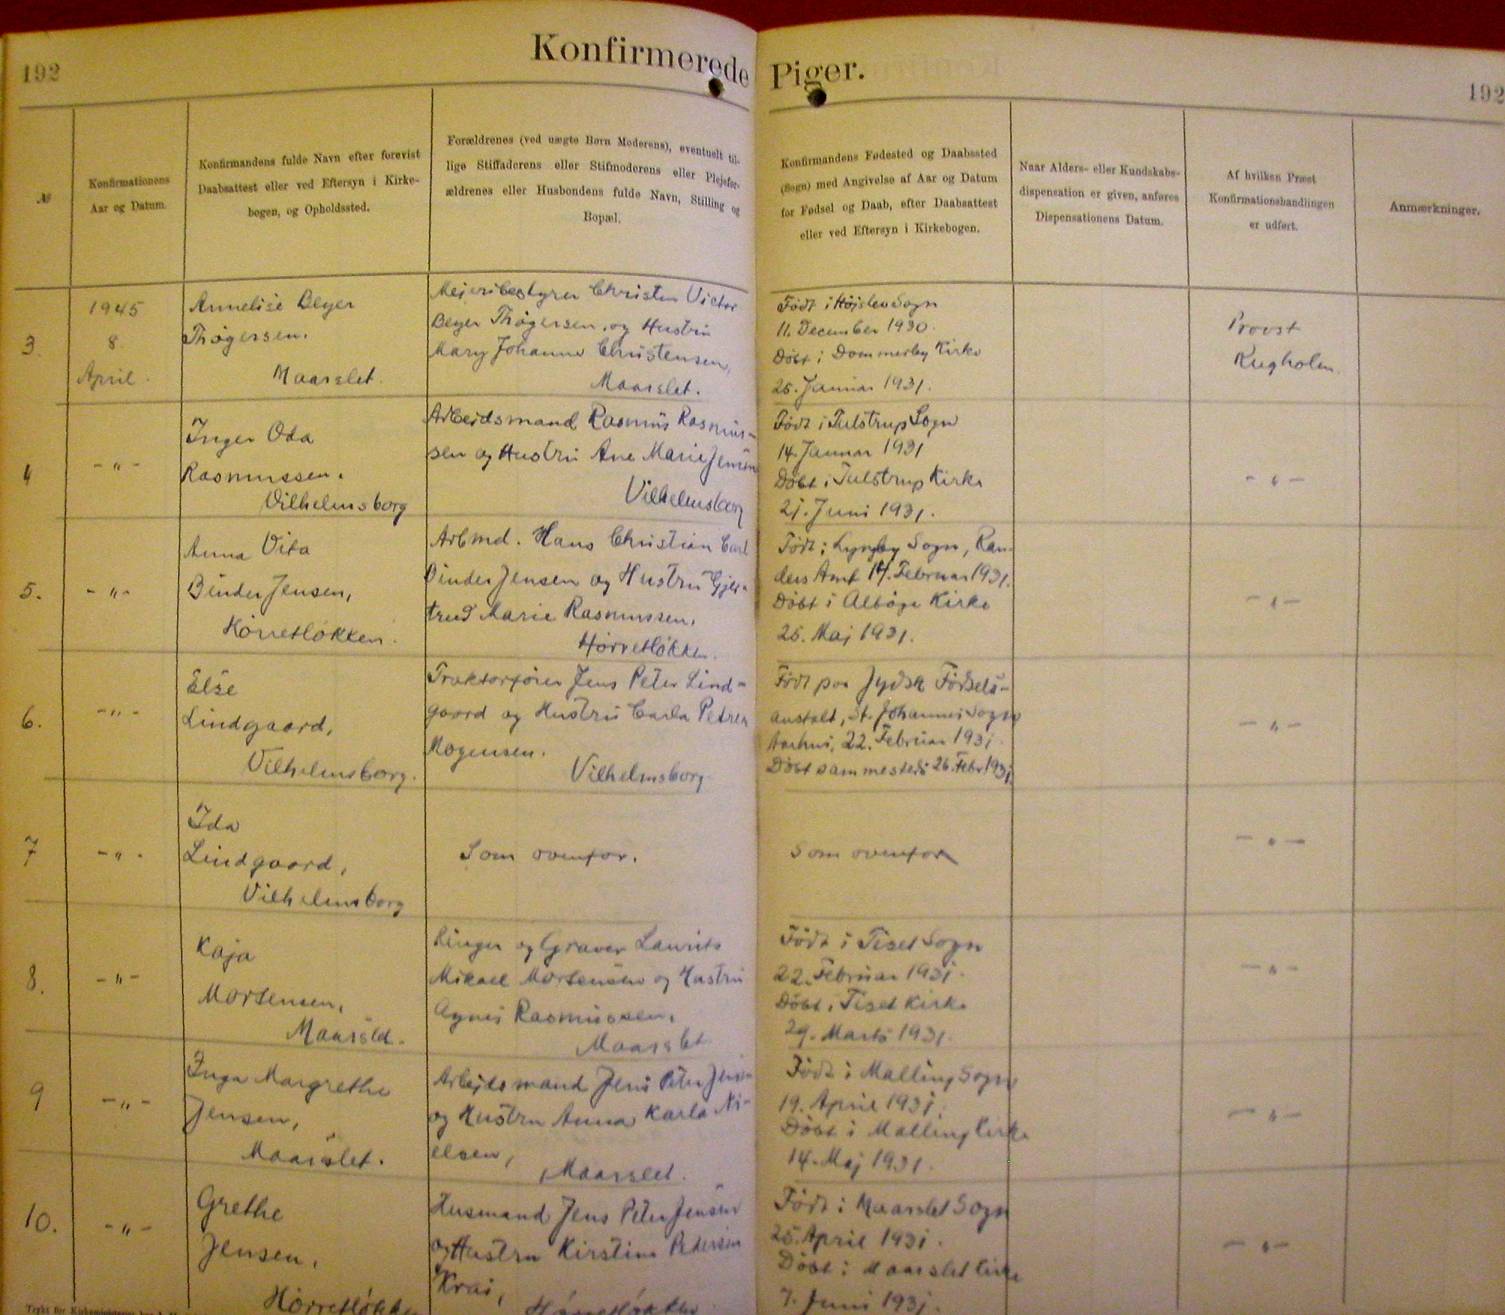 192
Konfirmerede Piger.
192
№
Konfirmationens
Aar og Datum.
Konfirmandens fulde Navn efter forevist
Daabsattest eller ved Eftersyn i Kirke-
bogen, og Opholdssted.
Forældrenes (ved uægte Børn Moderens), eventuelt til-
lige Stiffaderens eller Stifmoderens eller Plejefor-
ældrenes eller Husbondens fulde Navn, Stilling og
Bopæl.
Konfirmandens Fødested og Daabssted
(Sogn) med Angivelse af Aar og Datum
for Fødsel og Daab, efter Daabsattest
eller ved Eftersyn i Kirkebogen.
Naar Alders- eller Kundskabs-
dispensation er given, anføres
Dispensationens Datum.
Af hvilken Præst
Konfirmationshandlingen
er udført.
Anmærkninger.
3.
1945
8.
April.
Annelise Beyer
Thøgersen.
Maarslet.
Mejeribestyrer Christen Victor
Beyer Thøgersen, og Hustru
Mary Johanne Christensen,
Maarslet.
Født i Højslev Sogn
11. December 1930.
Døbt i Dommerby Kirke
25. Januar 1931.
Provst
Krogholm.
4
-"-
Inger Oda
Rasmussen.
Vilhelmsborg
Arbejdsmand Rasmus Rasmus-
sen og Hustru Ane Marie Jensen
Vilhelmsborg
Født i Tulstrup Sogn
14. Januar 1931
Døbt i Tulstrup Kirke
21. Juni 1931.
-"-
5.
-"-
Anna Vita
Binder Jensen,
Hørretløkken.
Arbmd. Hans Christian Carl
Binder Jensen og Hustru Gjer-
trud Marie Rasmussen.
Hørretløkken.
Født i Lyngby Sogn, Ran-
ders Amt 14. Februar 1931.
Døbt i Albøge Kirke
25. Maj 1931.
-"-
6.
-"-
Else
Lindgaard,
Vilhelmsborg.
Traktorfører Jens Peter Lind-
gaard og Hustru Carla Petrea
Mogensen.
Vilhelmsborg
Født paa Jydsk Fødsels-
anstalt, St. Johannes Sogn
Aarhus, 22. Februar 1931.
Døbt sammesteds 26. Febr. 1931.
-"-
7
-"-
Ida
Lindgaard,
Vilhelmsborg
Som ovenfor.
Som ovenfor
-"-
8.
-"-
Kaja
Mortensen,
Maarslet.
Ringer og Graver Laurits
Mikael Mortensen og Hustru
Agnes Rasmussen.
Maarslet
Født i Tiset Sogn
22. Februar 1931.
Døbt i Tiset Kirke
29. Marts 1931.
-"-
9
-"-
Inga Margrethe
Jensen,
Maarslet.
Arbejdsmand Jens Peter Jensen
og Hustru Anna Karla Ni-
elsen,
Maarslet.
Født i Malling Sogn
19. April 1931.
Døbt i Malling Kirke
14. Maj 1931.
-"-
10.
-"-
Grethe
Jensen,
Hørretløkken
Husmand Jens Peter Jensen
og Hustru Kirstine Pedersen
Krai,
Hørretløkken
Født i Maarslet Sogn
25. April 1931.
Døbt i Maarslet Kirke
7. Juni 1931.
-"-